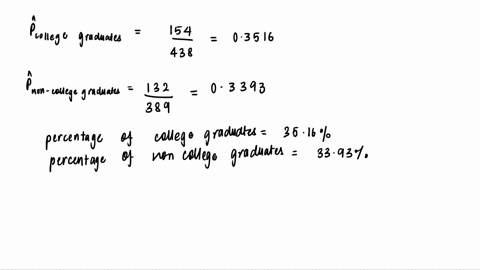 p̂ college graduates = 154/438 = 0.3516
p̂ non-college graduates = 132/389 = 0.3393
percentage of college graduates = 35.16%
percentage of non college graduates = 33.93%.